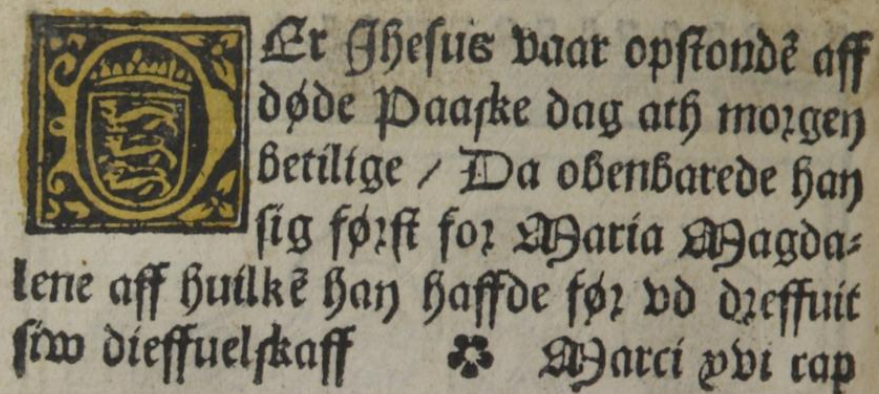 DEr Jheſus vaar opſtondē aff
døde Paaſke dag ath morgen
betilige / Da obenbarede han
ſig førſt for Maria Magda⸗
lene aff huilkē han haffde før vd dreffuit
ſiw dieffuelſkaff ✿ Marci xvi cap